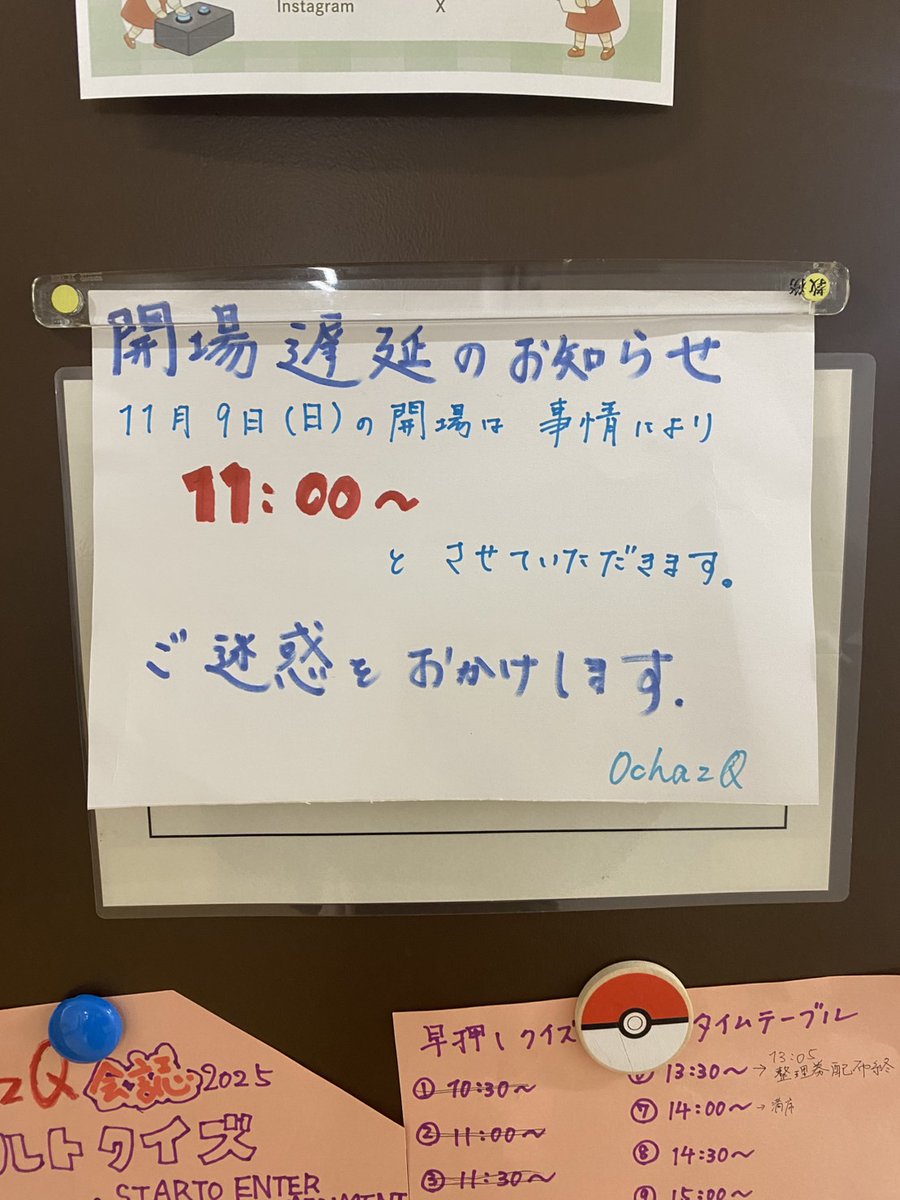 Instagram X
教務
開場遅延のお知らせ
11月9日(日)の開場は 事情により
11:00～
と させていただきます。
ご迷惑をおかけします.
OchazQ
zQ 会誌 2025
ルトクイズ
STARTO ENTER
早押しクイズ タイムテーブル
① 10:30～
② 11:00～
③ 11:30～
13:05
13:30～→整理券配布終
⑦ 14:00～→満席
⑧ 14:30～
15:00～